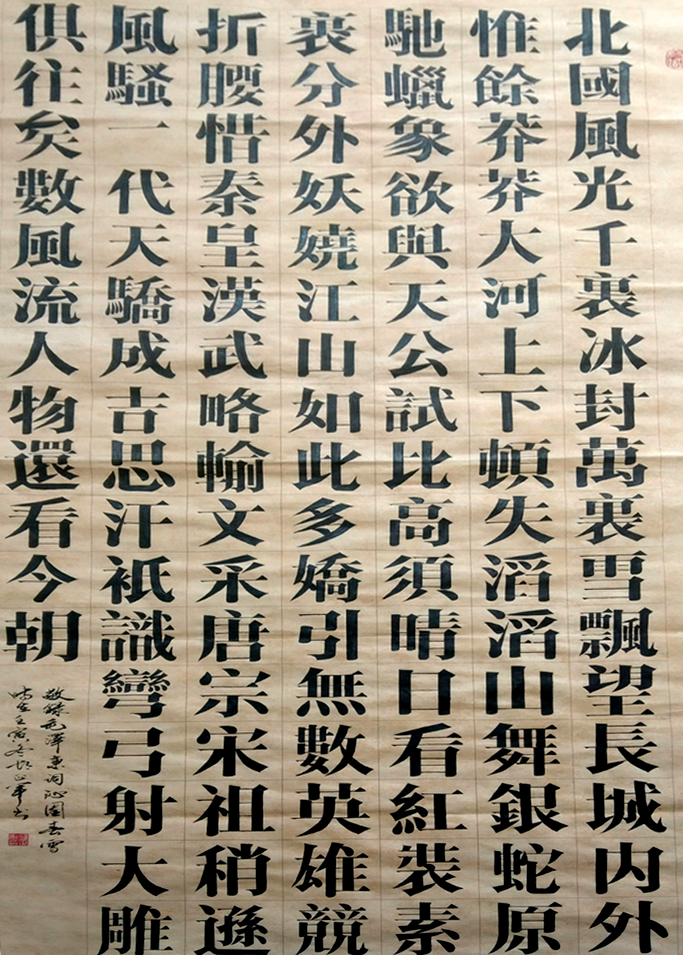 北國風光千裏冰封萬裏雪飄望長城内外
惟餘莽莽大河上下頓失滔滔山舞銀蛇原
馳蠟象欲與天公試比高須晴日看紅裝素
裹分外妖嬈江山如此多嬌引無數英雄競
折腰惜秦皇漢武略輸文采唐宗宋祖稍遜
風騷一代天驕成吉思汗衹識彎弓射大雕
俱往矣數風流人物還看今朝
敬録毛澤東詞沁園春雪
時在壬寅冬